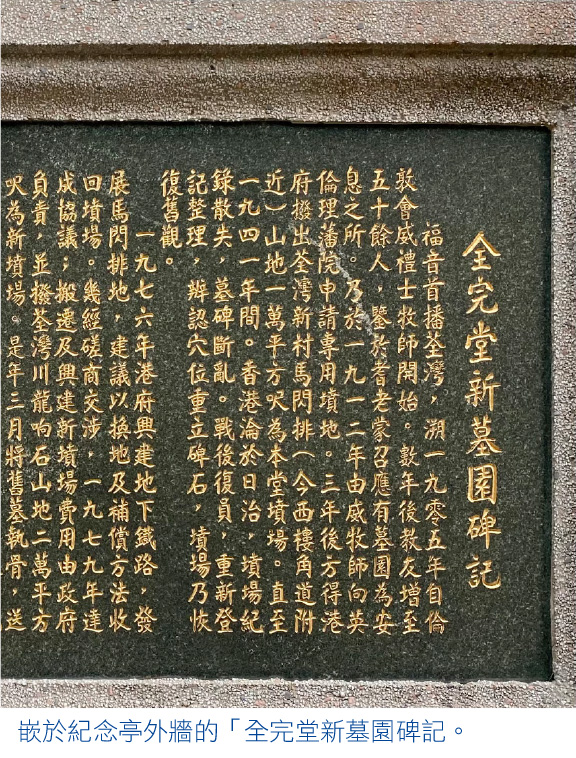 全完堂新墓園碑記
福音首播荃灣，溯一九零五年自倫
敦會威禮士牧師開始。數年後教友增至
五十餘人，鑒於耆老蒙召應有墓園為安
息之所。乃於一九一二年由威牧師向英
倫理藩院申請專用墳地。三年後方得港
府撥出荃灣新村馬閃排（今西樓角道附
近）山地一萬平方呎為本堂墳場。直至
一九四一年間。香港淪於日治，墳場紀
錄散失，墓碑斷亂。戰後復員，重新登
記整理，辨認穴位重立碑石，墳場乃恢
復舊觀。
一九七六年港府興建地下鐵路，發
展馬閃排地，建議以換地及補償方法收
回墳場。幾經磋商交涉，一九七九年達
成協議；搬遷及興建新墳場費用由政府
負責，並撥荃灣川龍响石山地二萬平方
呎為新墳場。是年三月將舊墓執骨，送
嵌於紀念亭外牆的「全完堂新墓園碑記。